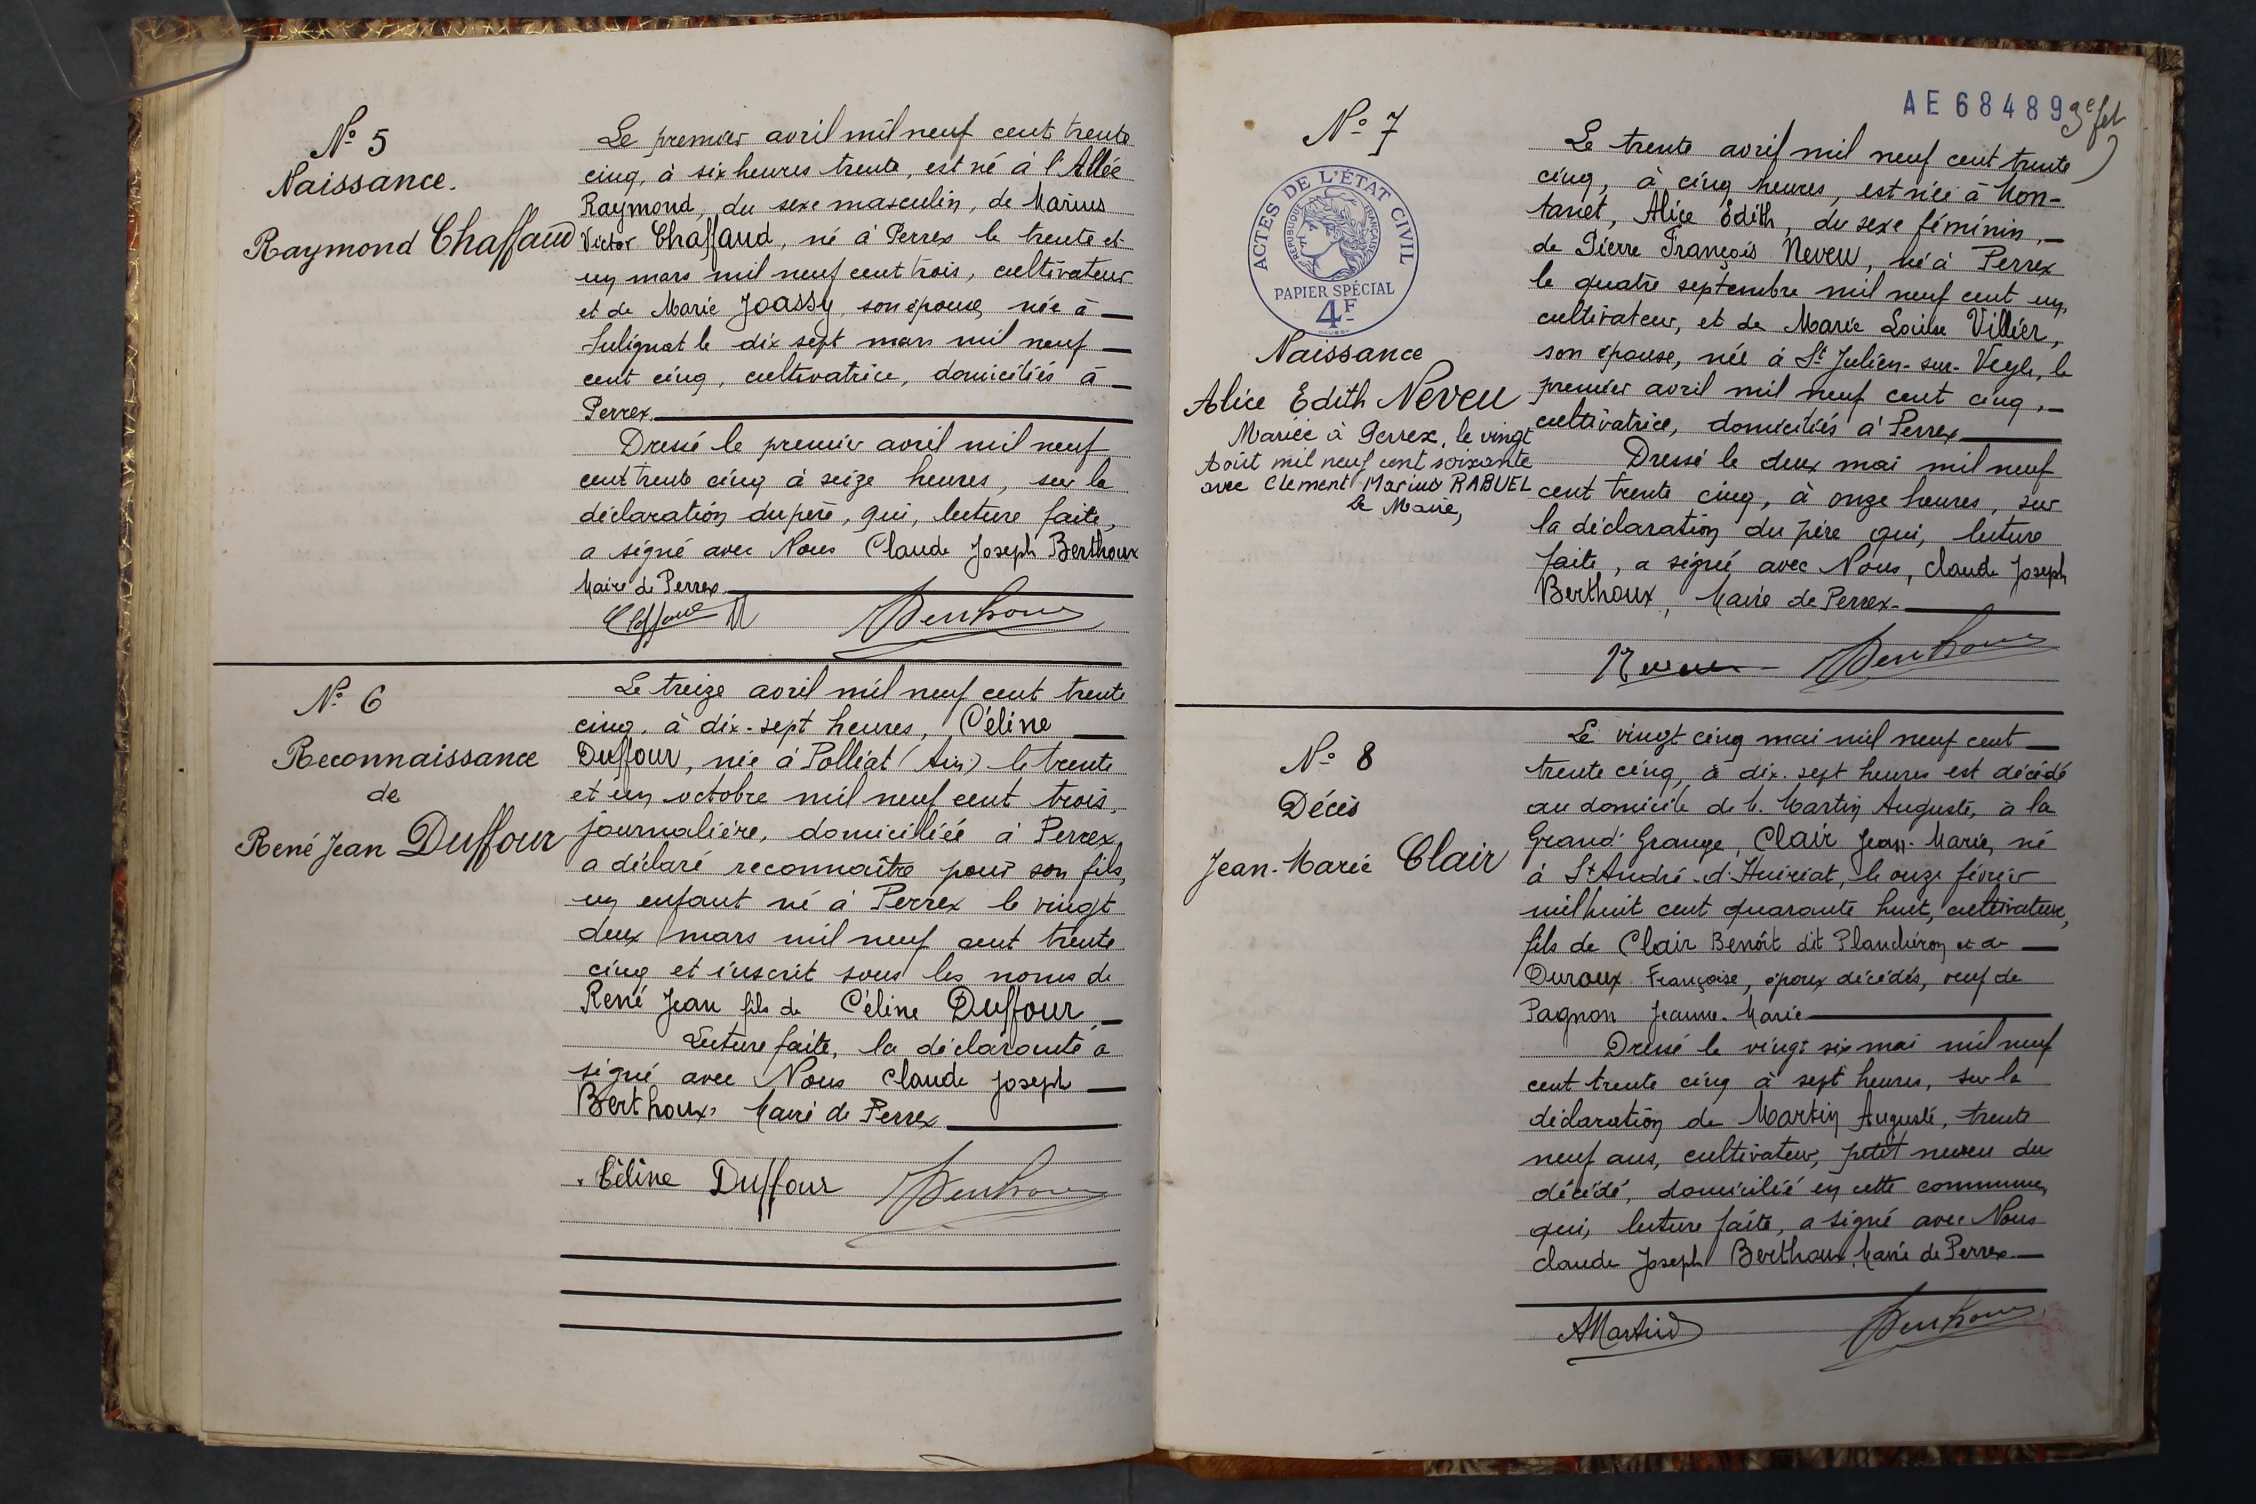 N° 5
Naissance.
Raymond Chaffaud
Le premier avril mil neuf cent trente
cinq, à six heures trente, est né à l'Allée
Raymond, du sexe masculin, de Marius
Victor Chaffaud, né à Perrex le trente et
un mars mil neuf cent trois, cultivateur
et de Marie Joassy, son épouse, née à
Sulignat le dix sept mars mil neuf
cent cinq, cultivatrice, domiciliés à
Perrex.
Dressé le premier avril mil neuf
cent trente cinq à seize heures, sur la
déclaration du père, qui, lecture faite,
a signé avec Nous Claude Joseph Berthoux
Maire de Perrex
Chaffaud M Berthoux
N° 6
Reconnaissance
de
René Jean Duffour
Le treize avril mil neuf cent trente
cinq, à dix-sept heures, Céline
Duffour, née à Polliat (Ain) le trente
et un octobre mil neuf cent trois,
journalière, domiciliée à Perrex,
a déclaré reconnaître pour son fils,
un enfant né à Perrex le vingt
deux mars mil neuf cent trente
cinq et inscrit sous les noms de
René Jean fils de Céline Duffour
Lecture faite, la déclarante a
signé avec Nous Claude Joseph
Berthoux, Maire de Perrex
Céline Duffour Berthoux
AE 68489 3e fet
N° 7
ACTES DE L'ÉTAT CIVIL
RÉPUBLIQUE FRANÇAISE
PAPIER SPÉCIAL
4F
Naissance
Alice Edith Neveu
Mariée à Perrex, le vingt
Août mil neuf cent soixante
avec Clément Marius RABUEL
Le Maire,
Le trente avril mil neuf cent trente
cinq, à cinq heures, est née à Mon-
tanet, Alice Edith, du sexe féminin,
de Pierre François Neveu, né à Perrex
le quatre septembre mil neuf cent un,
cultivateur, et de Marie Louise Villier,
son épouse, née à St Julien-sur-Veyle, le
premier avril mil neuf cent cinq,
cultivatrice, domiciliés à Perrex
Dressé le deux mai mil neuf
cent trente cinq, à onze heures, sur
la déclaration du père qui, lecture
faite, a signé avec Nous, Claude Joseph
Berthoux, Maire de Perrex.
Neveu Berthoux
N° 8
Décès
Jean-Marie Clair
Le vingt cinq mai mil neuf cent
trente cinq, à dix-sept heures est décédé
au domicile de M. Martin Auguste, à la
Grand' Grange, Clair Jean-Marie, né
à St André-d'Huiriat, le onze février
mil huit cent quarante huit, cultivateur,
fils de Clair Benoît dit Planchéron et de
Duroux Françoise, époux décédés, veuf de
Pagnon Jeanne-Marie
Dressé le vingt six mai mil neuf
cent trente cinq à sept heures, sur la
déclaration de Martin Auguste, trente
neuf ans, cultivateur, petit neveu du
décédé, domicilié en cette commune,
qui, lecture faite, a signé avec Nous
Claude Joseph Berthoux, Maire de Perrex
A Martin Berthoux